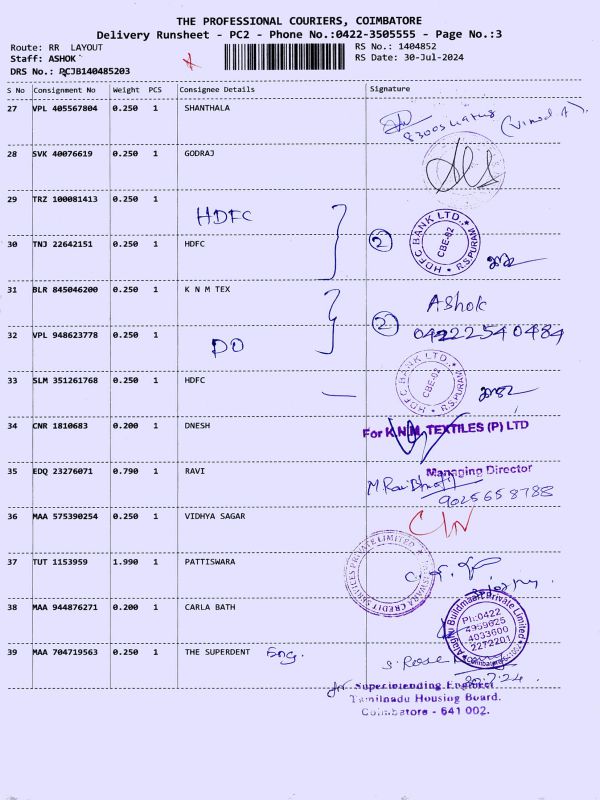 THE PROFESSIONAL COURIERS, COIMBATORE
Delivery Runsheet - PC2 - Phone No.:0422-3505555 - Page No.:3
Route: RR LAYOUT
RS No.: 1404852
Staff: ASHOK
RS Date: 30-Jul-2024
DRS No.: PCJB140485203
S No Consignment No Weight PCS Consignee Details Signature
27 VPL 405567804 0.250 1 SHANTHALA
28 SVK 40076619 0.250 1 GODRAJ
29 TRZ 100081413 0.250 1
HDFC
30 TNJ 22642151 0.250 1 HDFC
2
HDFC BANK LTD. CBE-02 R.S.PURAM
31 BLR 845046200 0.250 1 K N M TEX
Ashok
2
04222540484
32 VPL 948623778 0.250 1
DO
33 SLM 351261768 0.250 1 HDFC
HDFC BANK LTD. CBE-02 R.S.PURAM
34 CNR 1810683 0.200 1 DNESH
For K.N.M. TEXTILES (P) LTD
Managing Director
35 EDQ 23276071 0.790 1 RAVI
9025658788
36 MAA 575390254 0.250 1 VIDHYA SAGAR
37 TUT 1153959 1.990 1 PATTISWARA
38 MAA 944876271 0.200 1 CARLA BATH
Buildmaart Private Limited
PH:0422
4959625
4033600
2272201
Coimbatore
39 MAA 704719563 0.250 1 THE SUPERDENT Eng.
30.7.24
for Superintending Engineer
Tamilnadu Housing Board.
Coimbatore - 641 002.